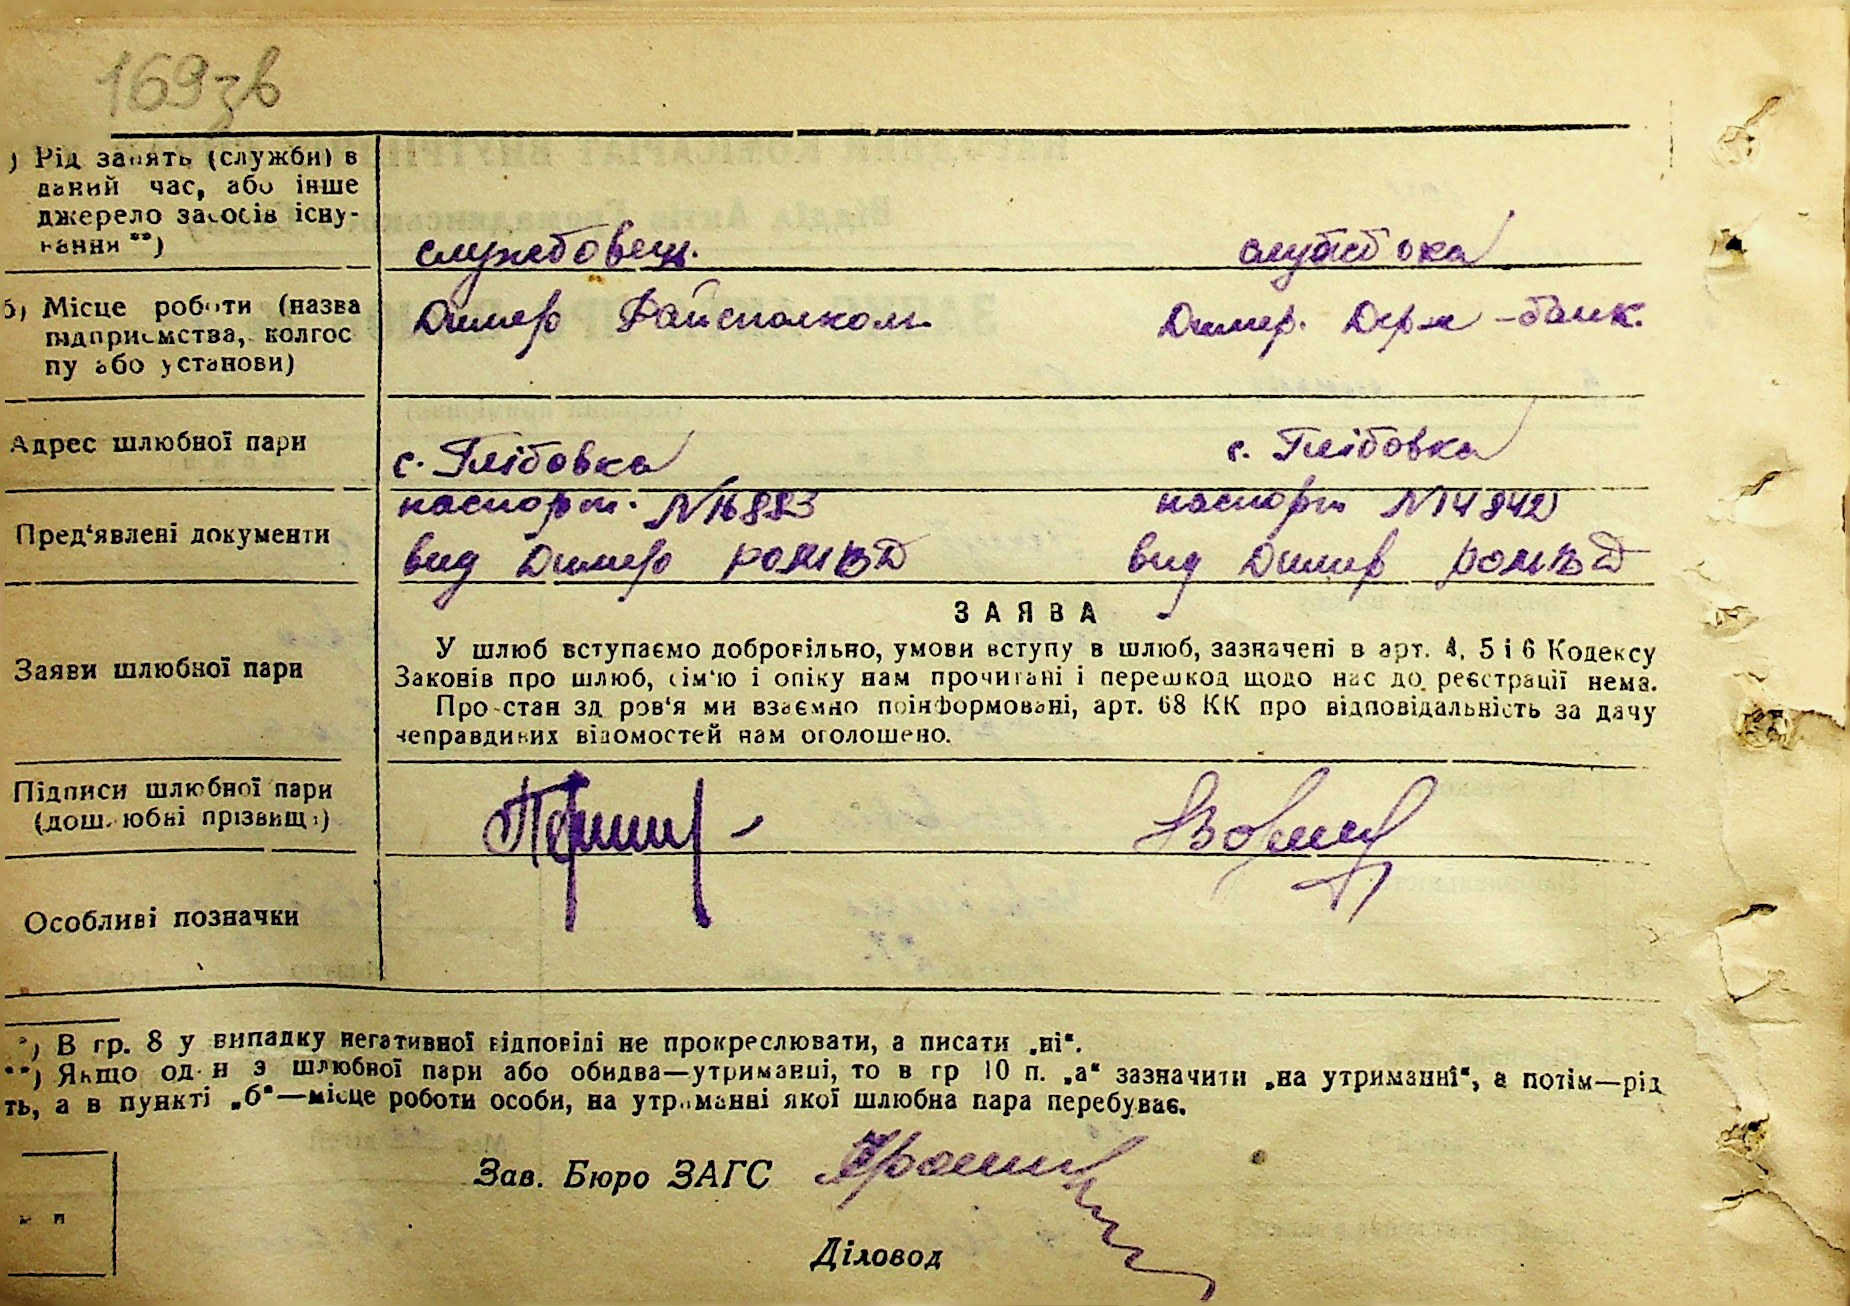 169 зв
) Рід занять (служби) в
даний час, або інше
джерело засобів існу-
вання **)
службовец. службовка
б) Місце роботи (назва
підприємства, колгос
пу або установи)
Димер Райісполком Димер. Держ-банк.
Адрес шлюбної пари
с. Глібовка с. Глібовка
Пред'явлені документи
паспорт. №16883 паспорт №14842
вид Димер РОМВД вид Димер РОМВД
Заяви шлюбної пари
ЗАЯВА
У шлюб вступаємо добровільно, умови вступу в шлюб, зазначені в арт. 4, 5 і 6 Кодексу
Законів про шлюб, сім'ю і опіку нам прочитані і перешкод щодо нас до реєстрації нема.
Про стан здоров'я ми взаємно поінформовані, арт. 68 КК про відповідальність за дачу
неправдивих відомостей нам оголошено.
Підписи шлюбної пари
(дошлюбні прізвища)
Особливі позначки
*) В гр. 8 у випадку негативної відповіді не прокреслювати, а писати „ні“.
**) Якщо один з шлюбної пари або обидва—утриманці, то в гр 10 п. „а“ зазначити „на утриманні“, а потім—рід
ть, а в пункті „б“—місце роботи особи, на утриманні якої шлюбна пара перебуває.
Зав. Бюро ЗАГС
Діловод